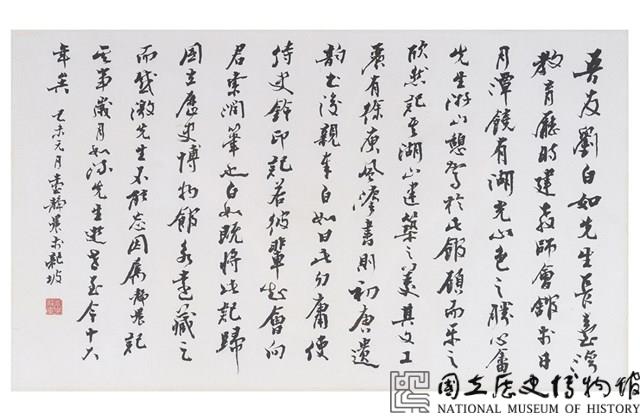 吾友劉白如先生長臺灣
教育廳時建教師會館於日
月潭饒有湖光山色之勝心畬
先生游山憩駕於此館顧而樂之
欣然記其湖山建築之美其文工
麗有徐庾風貌書則初唐遺
韵書後親奉白如曰此勿庸使
侍史鈐印記若彼輩起會向
君索潤筆也白如既將此記歸
國立歷史博物館永遠藏之
而感激先生不能忘因屬靜農記
其事歲月如流先生逝世至今十六
年矣 己未元月臺靜農於龍坡
國立歷史博物館
NATIONAL MUSEUM OF HISTORY